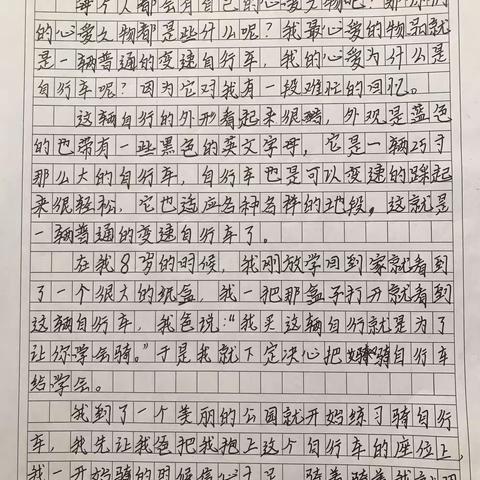 每个人都会有自己的心爱之物吧？那你们
的心爱之物都是些什么呢？我最心爱的物品就
是一辆普通的变速自行车，我的心爱为什么是
自行车呢？因为它对我有一段难忘的回忆。
这辆自行的外形看起来很酷，外观是蓝色
的也带有一些黑色的英文字母，它是一辆25寸
那么大的自行车，自行车也是可以变速的踩起
来很轻松，它也适应各种各样的地段，这就是
一辆普通的变速自行车了。
在我8岁的时候，我刚放学回到家就看到
了一个很大的纸盒，我一把那盒子打开就看到
这辆自行车，我爸说：“我买这辆自行就是为了
让你学会骑。”于是我就下定决心把骑自行车
给学会。
我到了一个美丽的公园就开始练习骑自行
车，我先让我爸把我抱上这个自行车的座位上，
我一开始骑的时候信心十足，骑着骑着我就